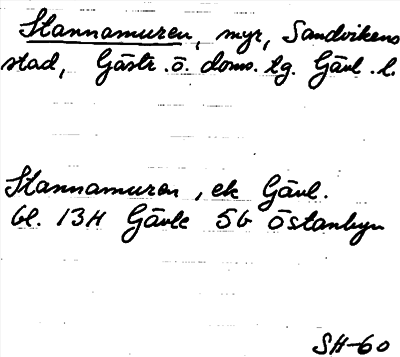 Stannamuren, myr, Sandvikens
stad, Gästr. ö. doms. tg. Gävl. l.
Stannamuren, ek Gävl.
bl. 13H Gävle 5b Östanbyn
SH-60